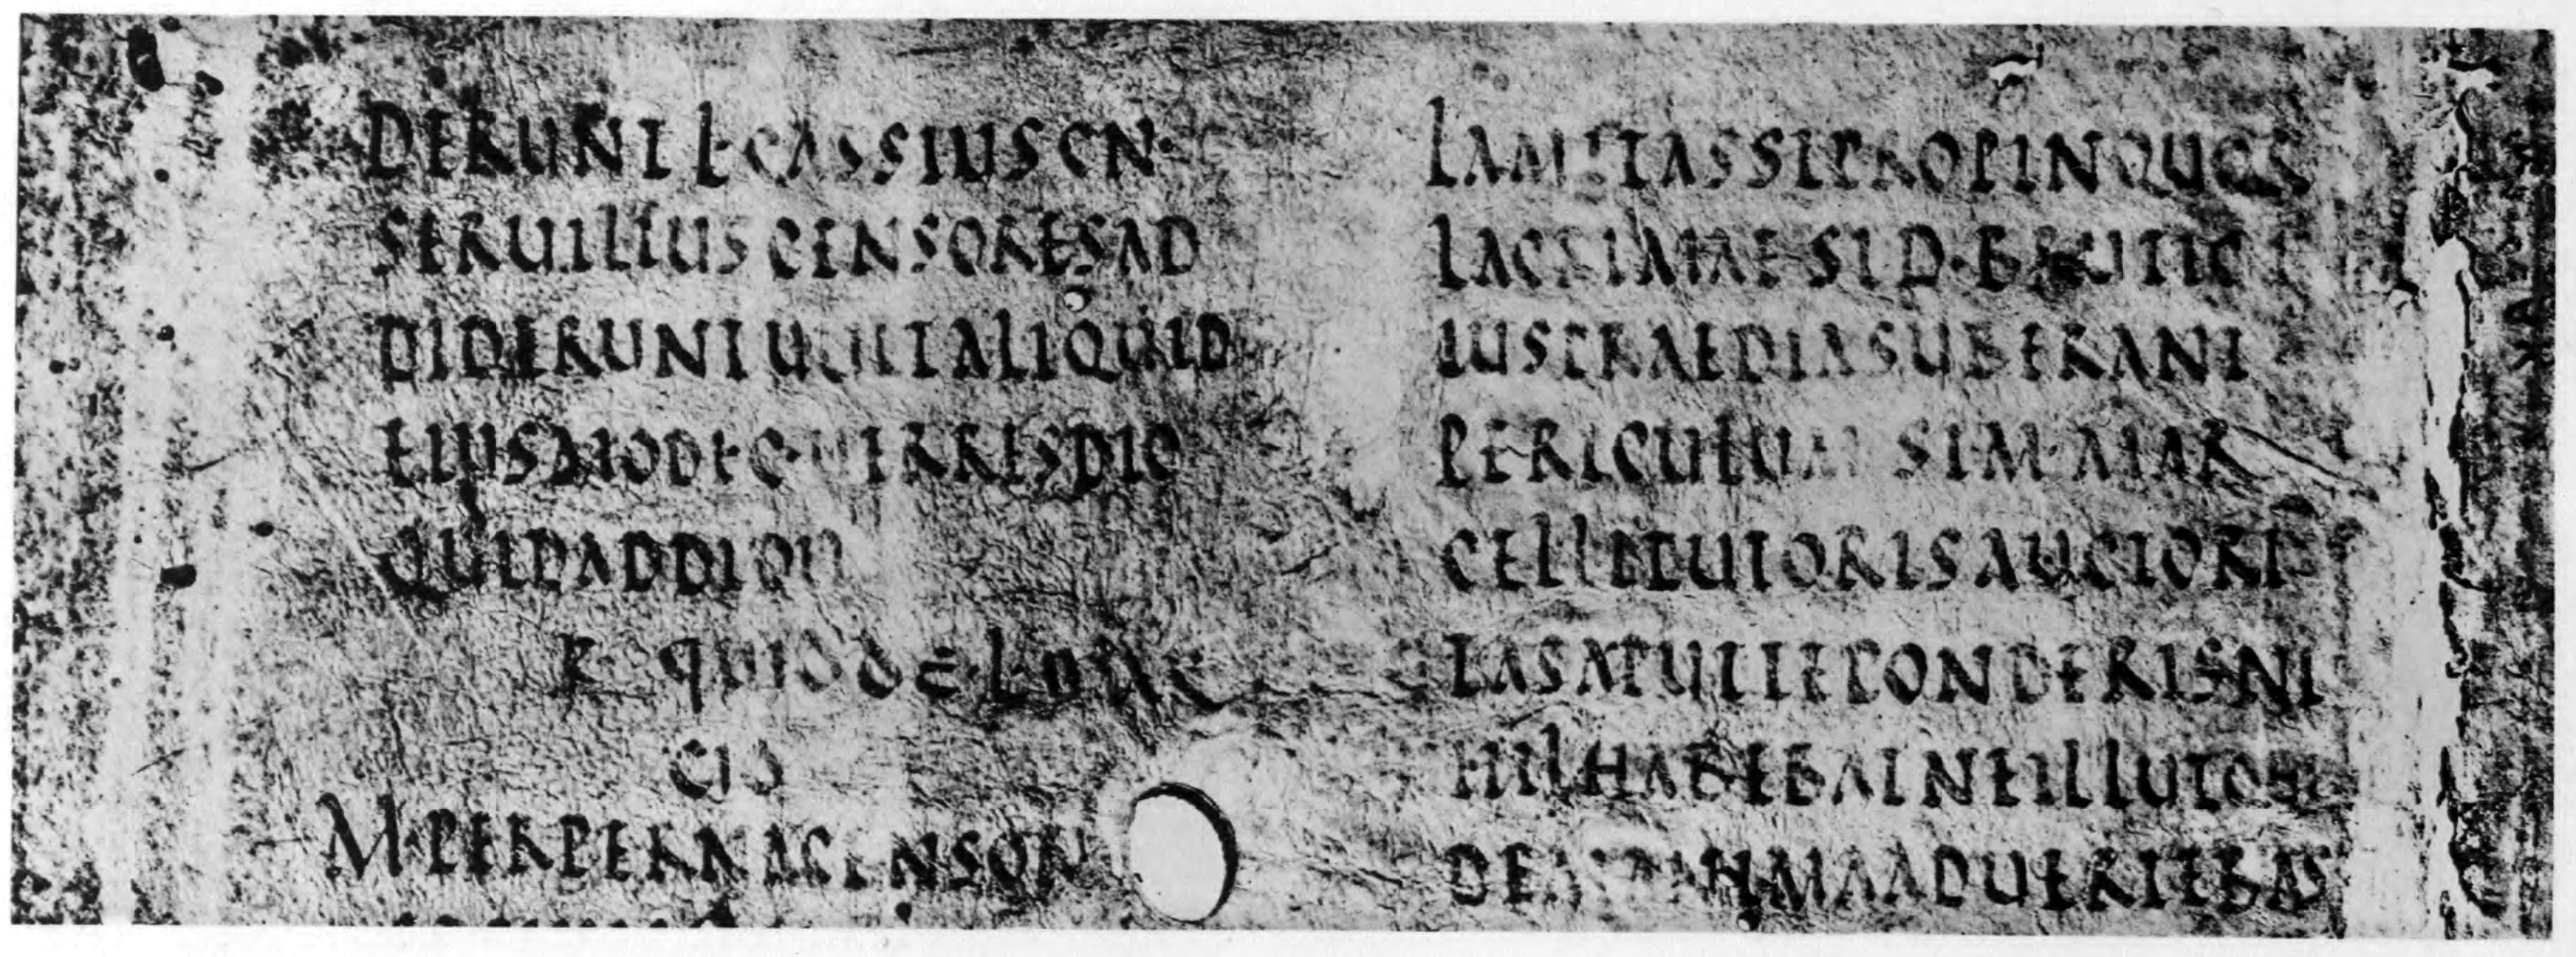 DERUNT L·CASSIUS CN·
SERUILIUS CENSORES AD
DIDERUNT UULT ALIQUID
EIUSMODI C·UERRES DIC
QUID ADDIDIT
R· QUI DE·L·MAR
CIO
M·PERPERNA CENSOR
LAMITAS SI PROPINQUOR
LACRIMAE SI D·BRUTI C
IUS PRAEDIA SUBERANT
PERICULUM SI M·MAR
CELLI TUTORIS AUCTORI
TAS APUT TE PONDERIS NI
HIL HABEBAT NE ILLUT QUI
DEM ANIMAADUERTEBAS